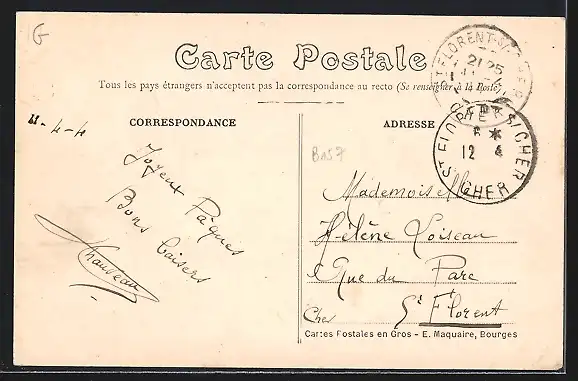 G
Carte Postale
Tous les pays étrangers n'acceptent pas la correspondance au recto (Se renseigner à la Poste)
CORRESPONDANCE
ADRESSE
11-4-4
BA57
Joyeux Pâques
Bons baisers
Chauveau
Mademoiselle
Hélène Loiseau
Rue du Parc
St Florent
Cher
Cartes Postales en Gros - E. Maquaire, Bourges
ST FLORENT-S/-CHER
21 25
ST FLORENT S/CHER
6 *
12 4
CHER